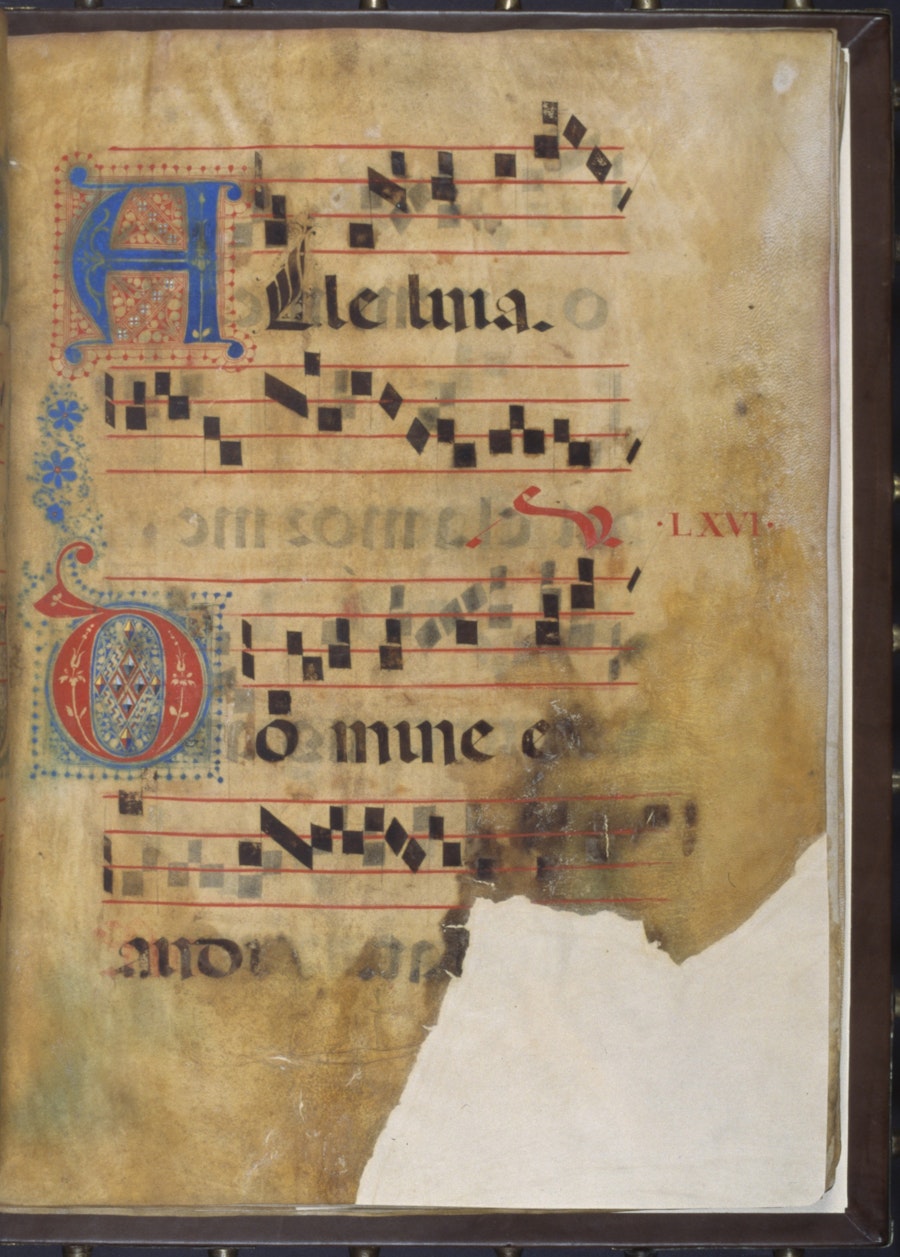 Alleluia.
V
·LXVI·
Domine e
audi